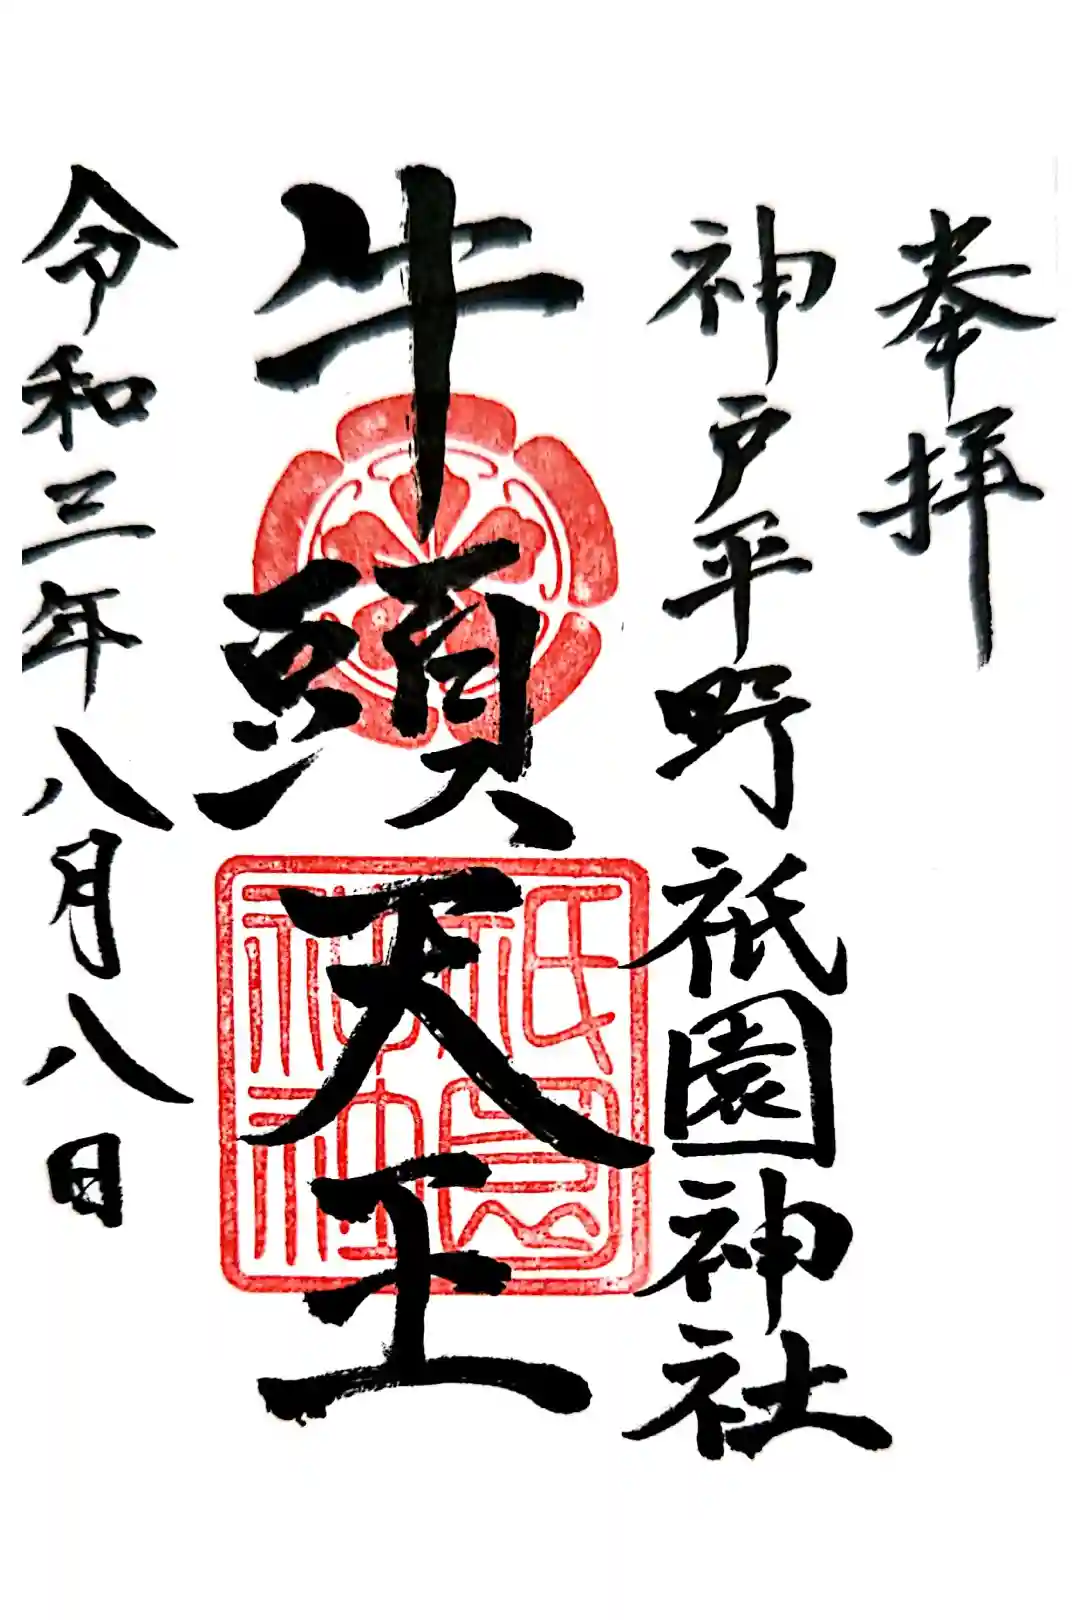 奉拝
神戸平野祇園神社
牛頭天王
祇園神社
令和三年八月八日